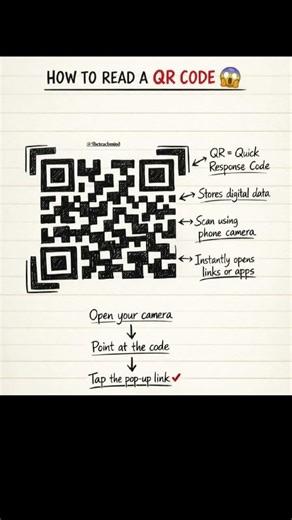 HOW TO READ A QR CODE 😱
@Theteachmind
QR = Quick
Response Code
Stores digital data
Scan using
phone camera
Instantly opens
links or apps
Open your camera
↓
Point at the code
↓
Tap the pop-up link ✔